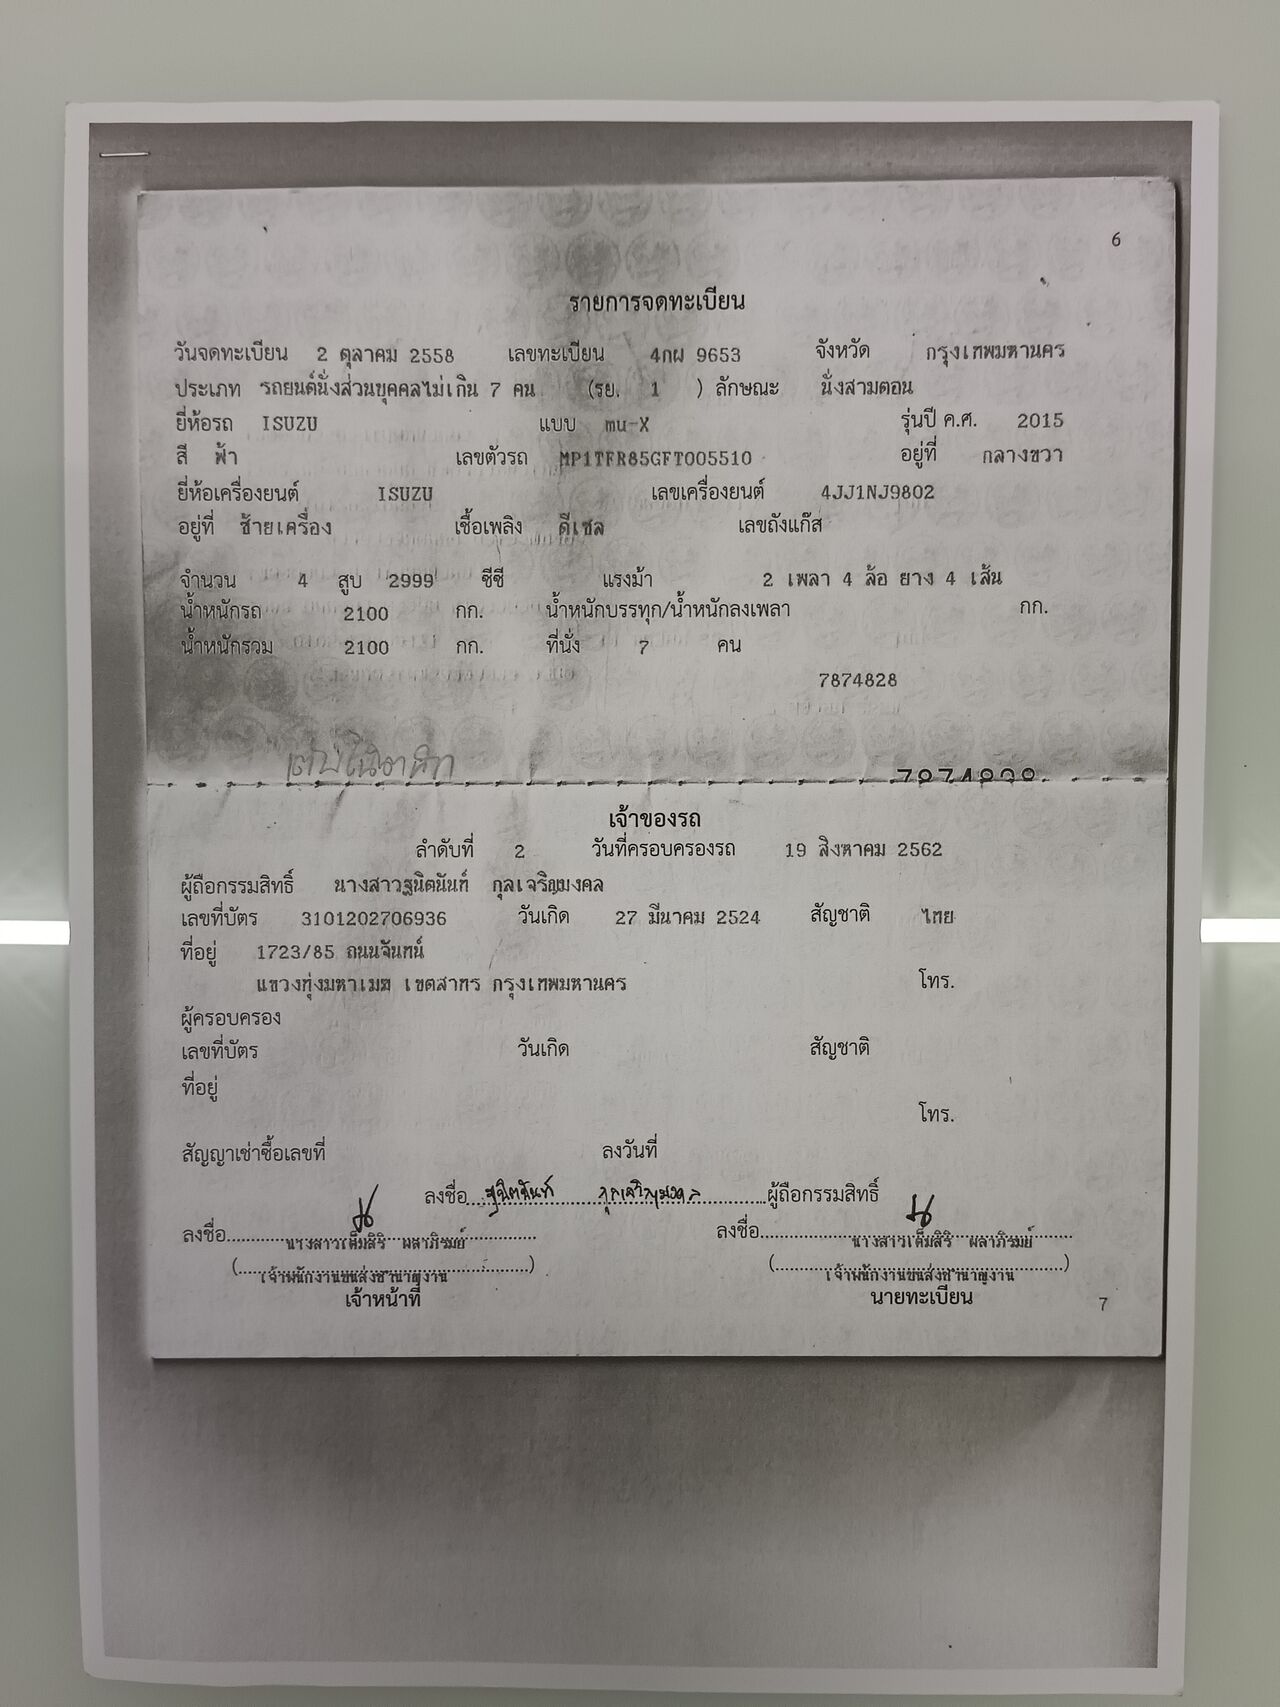 6
รายการจดทะเบียน
วันจดทะเบียน 2 ตุลาคม 2558 เลขทะเบียน 4กผ 9653 จังหวัด กรุงเทพมหานคร
ประเภท รถยนต์นั่งส่วนบุคคลไม่เกิน 7 คน (รย. 1 ) ลักษณะ นั่งสามตอน
ยี่ห้อรถ ISUZU แบบ mu-X รุ่นปี ค.ศ. 2015
สี ฟ้า เลขตัวรถ MP1TFR85GFT005510 อยู่ที่ กลางขวา
ยี่ห้อเครื่องยนต์ ISUZU เลขเครื่องยนต์ 4JJ1NJ9802
อยู่ที่ ซ้ายเครื่อง เชื้อเพลิง ดีเซล เลขถังแก๊ส
จำนวน 4 สูบ 2999 ซีซี แรงม้า 2 เพลา 4 ล้อ ยาง 4 เส้น
น้ำหนักรถ 2100 กก. น้ำหนักบรรทุก/น้ำหนักลงเพลา กก.
น้ำหนักรวม 2100 กก. ที่นั่ง 7 คน
7874828
เจ้าของรถ
ลำดับที่ 2 วันที่ครอบครองรถ 19 สิงหาคม 2562
ผู้ถือกรรมสิทธิ์ นางสาวฐนิตนันท์ กุลเจริญมงคล
เลขที่บัตร 3101202706936 วันเกิด 27 มีนาคม 2524 สัญชาติ ไทย
ที่อยู่ 1723/85 ถนนจันทน์
แขวงทุ่งมหาเมฆ เขตสาทร กรุงเทพมหานคร โทร.
ผู้ครอบครอง
เลขที่บัตร วันเกิด สัญชาติ
ที่อยู่
โทร.
สัญญาเช่าซื้อเลขที่ ลงวันที่
ลงชื่อ ฐนิตนันท์ กุลเจริญมงคล ผู้ถือกรรมสิทธิ์
ลงชื่อ นางสาวเต็มสิริ ผลาภิรมย์ ลงชื่อ นางสาวเต็มสิริ ผลาภิรมย์
(เจ้าพนักงานขนส่งชำนาญงาน) (เจ้าพนักงานขนส่งชำนาญงาน)
เจ้าหน้าที่ นายทะเบียน
7